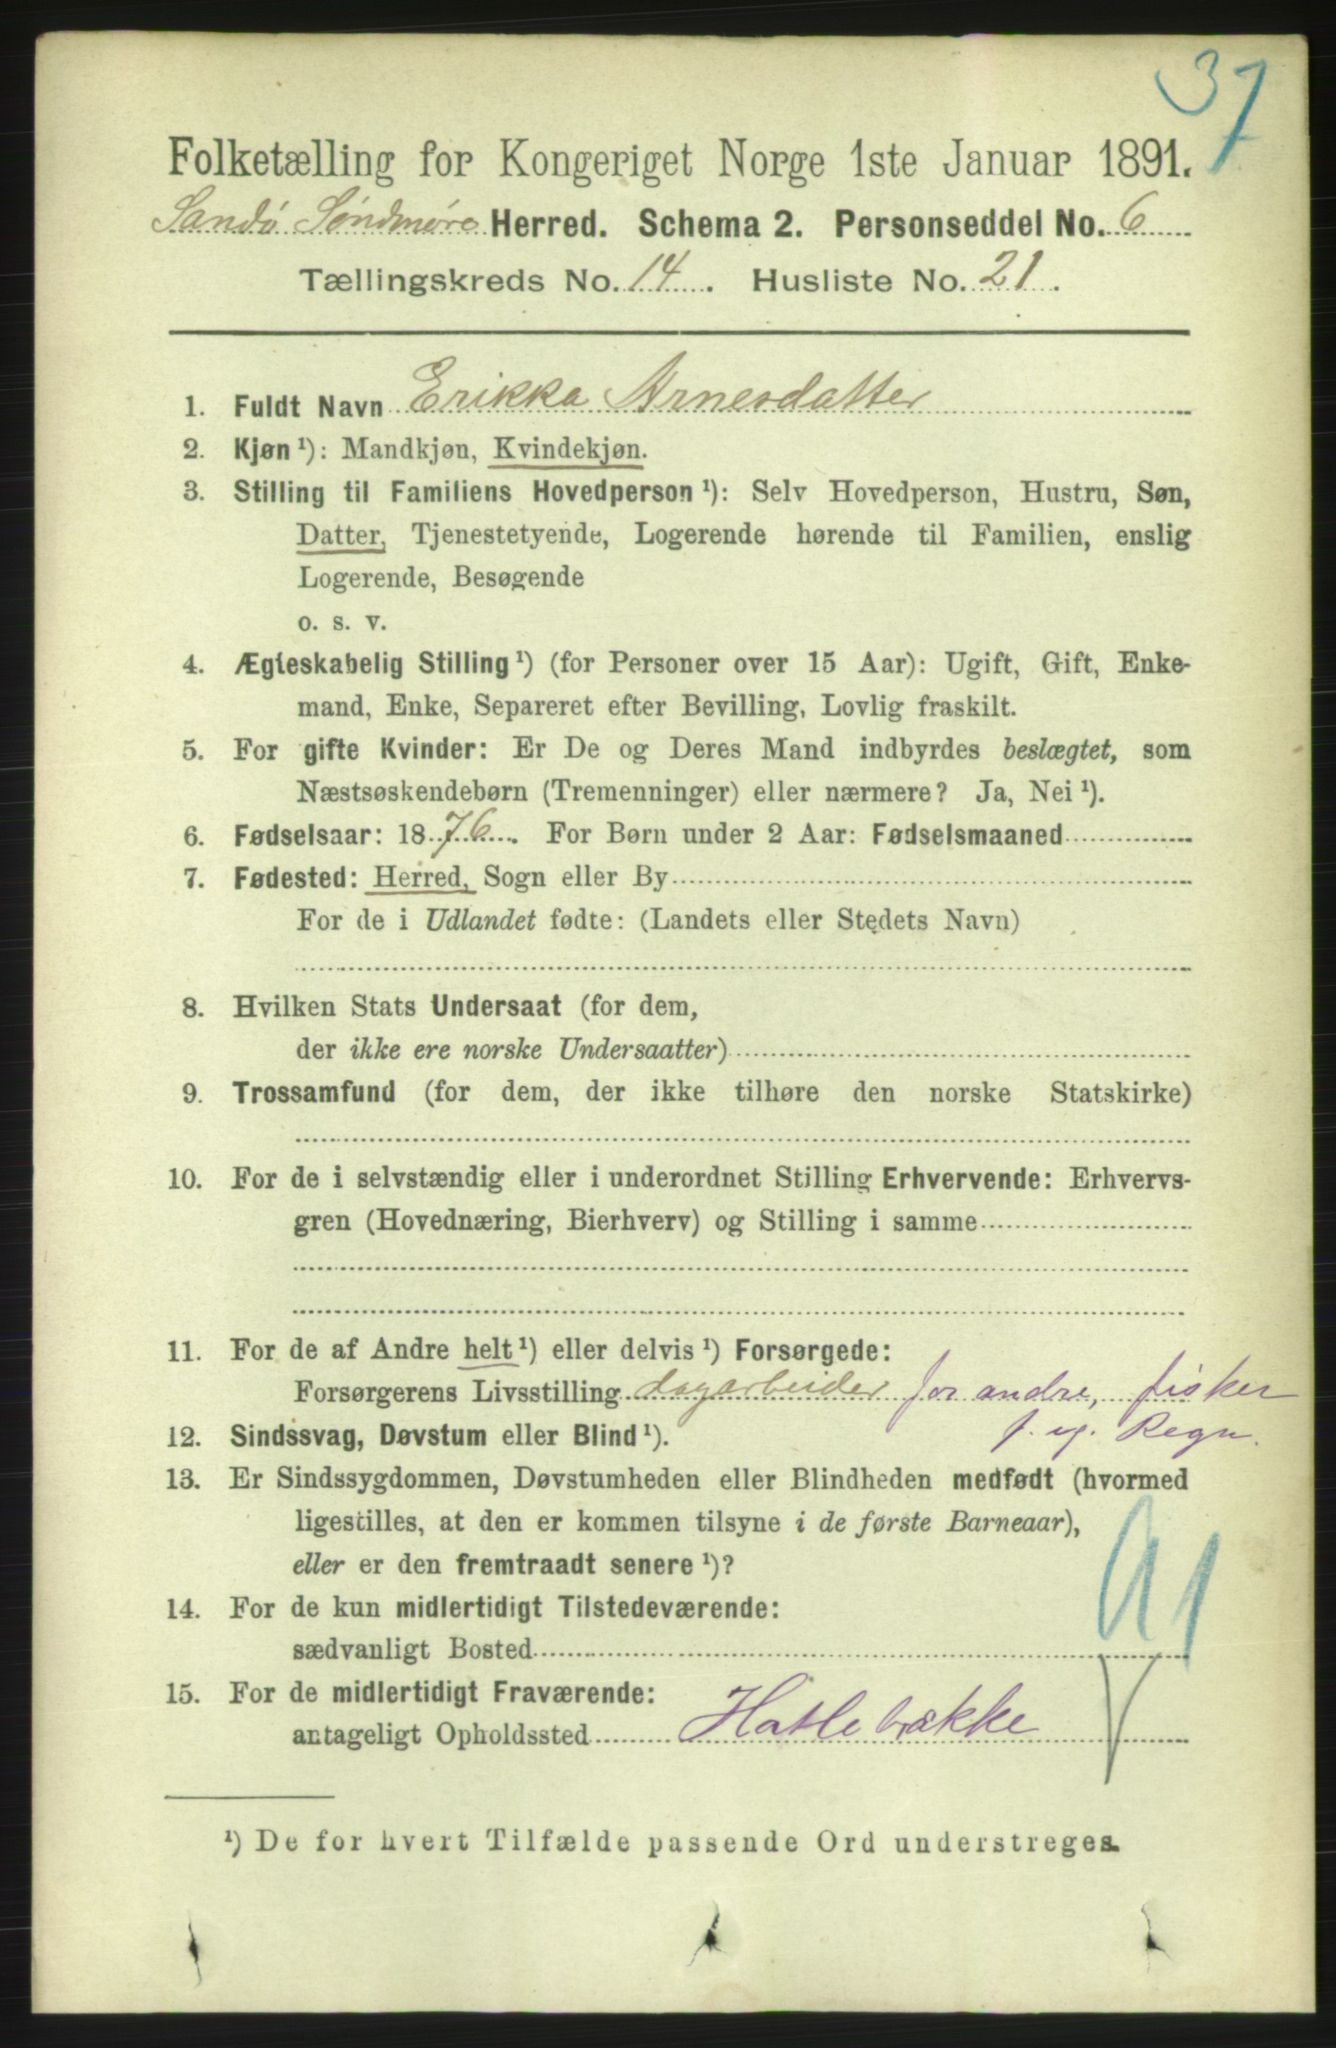 37
Folketælling for Kongeriget Norge 1ste Januar 1891.
Sandø Søndmøre Herred. Schema 2. Personseddel No. 6
Tællingskreds No. 14. Husliste No. 21.
1. Fuldt Navn Erikka Arnesdatter
2. Kjøn ¹): Mandkjøn, Kvindekjøn.
3. Stilling til Familiens Hovedperson ¹): Selv Hovedperson, Hustru, Søn,
Datter, Tjenestetyende, Logerende hørende til Familien, enslig
Logerende, Besøgende
o. s. v.
4. Ægteskabelig Stilling ¹) (for Personer over 15 Aar): Ugift, Gift, Enke-
mand, Enke, Separeret efter Bevilling, Lovlig fraskilt.
5. For gifte Kvinder: Er De og Deres Mand indbyrdes beslægtet, som
Næstsøskendebørn (Tremenninger) eller nærmere? Ja, Nei ¹).
6. Fødselsaar: 1876. For Børn under 2 Aar: Fødselsmaaned
7. Fødested: Herred, Sogn eller By
For de i Udlandet fødte: (Landets eller Stedets Navn)
8. Hvilken Stats Undersaat (for dem,
der ikke ere norske Undersaatter)
9. Trossamfund (for dem, der ikke tilhøre den norske Statskirke)
10. For de i selvstændig eller i underordnet Stilling Erhvervende: Erhvervs-
gren (Hovednæring, Bierhverv) og Stilling i samme
11. For de af Andre helt ¹) eller delvis ¹) Forsørgede:
Forsørgerens Livsstilling dagarbeider for andre, fisker
f. eg. Regn.
12. Sindssvag, Døvstum eller Blind ¹).
13. Er Sindssygdommen, Døvstumheden eller Blindheden medfødt (hvormed
ligestilles, at den er kommen tilsyne i de første Barneaar),
eller er den fremtraadt senere ¹)?
14. For de kun midlertidigt Tilstedeværende:
sædvanligt Bosted
15. For de midlertidigt Fraværende:
antageligt Opholdssted Hatlebrække
¹) De for hvert Tilfælde passende Ord understreges.